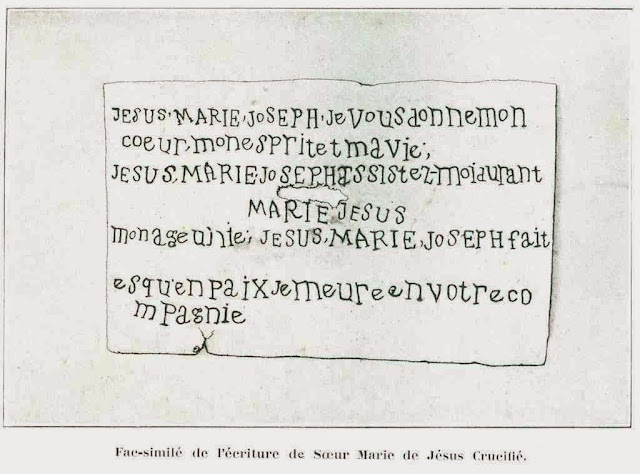 JESUS, MARIE, JOSEPH, Je Vous donne mon
coeur, mon esprit et ma vie;,
JESUS, MARIE JOSEPH Assistez-moi durant
MARIE JESUS
mon ageunie;, JESUS, MARIE, JOSEPH fait
esqu'en paix Je meure en votre co
mpagnie
Fac-similé de l'écriture de Sœur Marie de Jésus Crucifié.